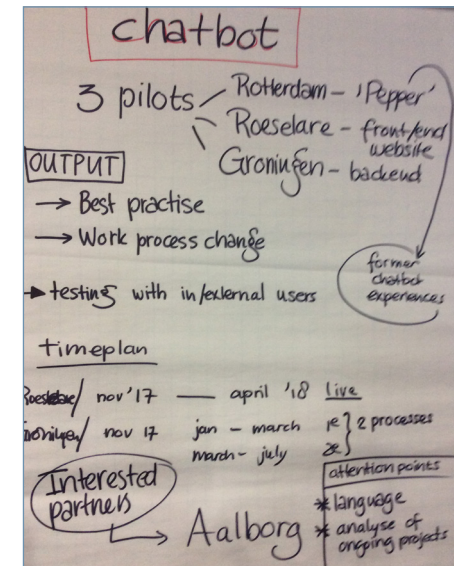 chatbot
3 pilots
Rotterdam - 'Pepper'
Roeselare - front/end
website
Groningen - backend
OUTPUT
→ Best practise
→ Work process change
→ testing with in/external users
former
chatbot
experiences
timeplan
/ nov '17 — april '18 live
/ nov 17 jan - march 1e } 2 processes
march - july 2e
Interested
partners
→ Aalborg
attention points
* language
* analyse of
ongoing projects